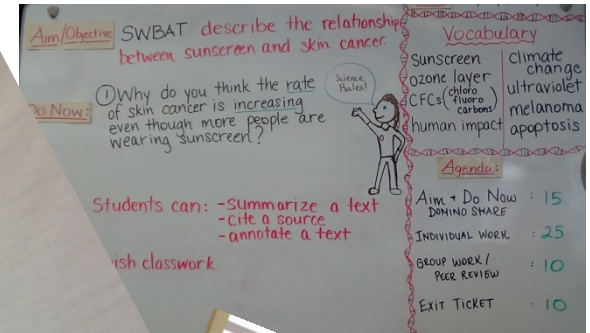 Aim/Objective SWBAT describe the relationship
between sunscreen and skin cancer.
Do Now: ① Why do you think the rate
of skin cancer is increasing
even though more people are
wearing sunscreen?
Science
Rules!
Students can: -summarize a text
-cite a source
-annotate a text
ish classwork
Vocabulary
Sunscreen
ozone layer
CFCs (chloro
fluoro
carbons)
human impact
climate
change
ultraviolet
melanoma
apoptosis
Agenda:
Aim + Do Now : 15
DOMINO SHARE
INDIVIDUAL WORK : 25
GROUP WORK/ : 10
PEER REVIEW
EXIT TICKET : 10